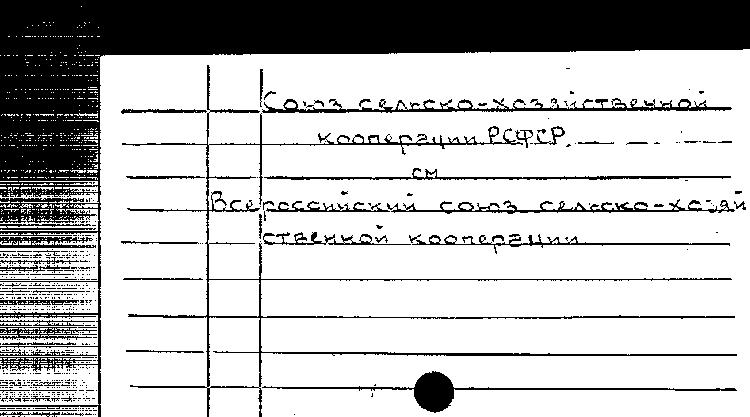 Союз сельско-хозяйственной
кооперации РСФСР.
см
Всероссийский союз сельско-хозяй
ственной кооперации